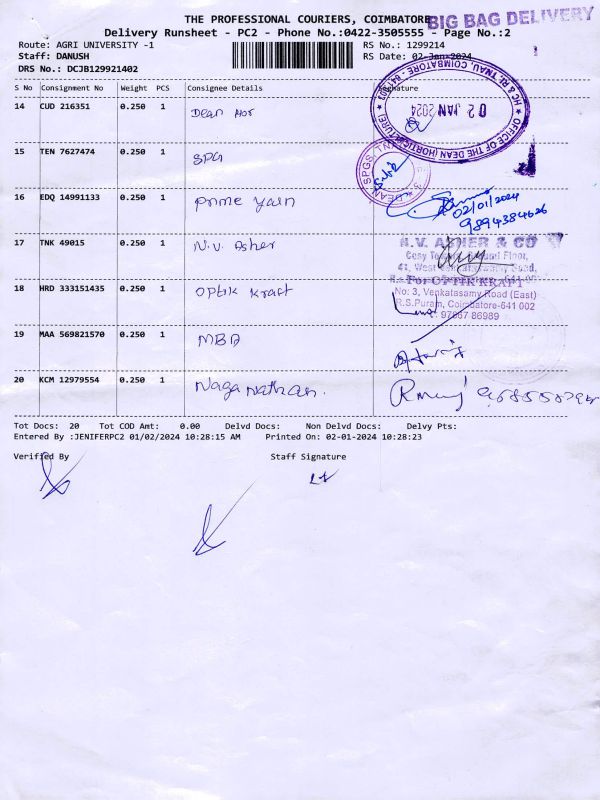 THE PROFESSIONAL COURIERS, COIMBATORE
BIG BAG DELIVERY
Delivery Runsheet - PC2 - Phone No.:0422-3505555 - Page No.:2
Route: AGRI UNIVERSITY -1
RS No.: 1299214
Staff: DANUSH
RS Date: 02-Jan-2024
DRS No.: DCJB129921402
S No Consignment No Weight PCS Consignee Details Signature
14 CUD 216351 0.250 1 Dean Hor
OFFICE OF THE DEAN (HORTICULTURE) HC & RI, TNAU, COIMBATORE - 641 003
02 JAN 2024
15 TEN 7627474 0.250 1 SPG
DEAN SPGS, TN
16 EDQ 14991133 0.250 1 Prime yarn
02/01/2024
9894384626
17 TNK 49015 0.250 1 N.V. Asher
N.V. ASHER & CO
41, West
18 HRD 333151435 0.250 1 Optik Kraft
For OPTIK KRAFT
No: 3, Venkatasamy Road (East)
R.S.Puram, Coimbatore-641 002
97867 86989
19 MAA 569821570 0.250 1 MBA
20 KCM 12979554 0.250 1 Naganathan.
Tot Docs: 20 Tot COD Amt: 0.00 Delvd Docs: Non Delvd Docs: Delvy Pts:
Entered By :JENIFERPC2 01/02/2024 10:28:15 AM Printed On: 02-01-2024 10:28:23
Verified By Staff Signature